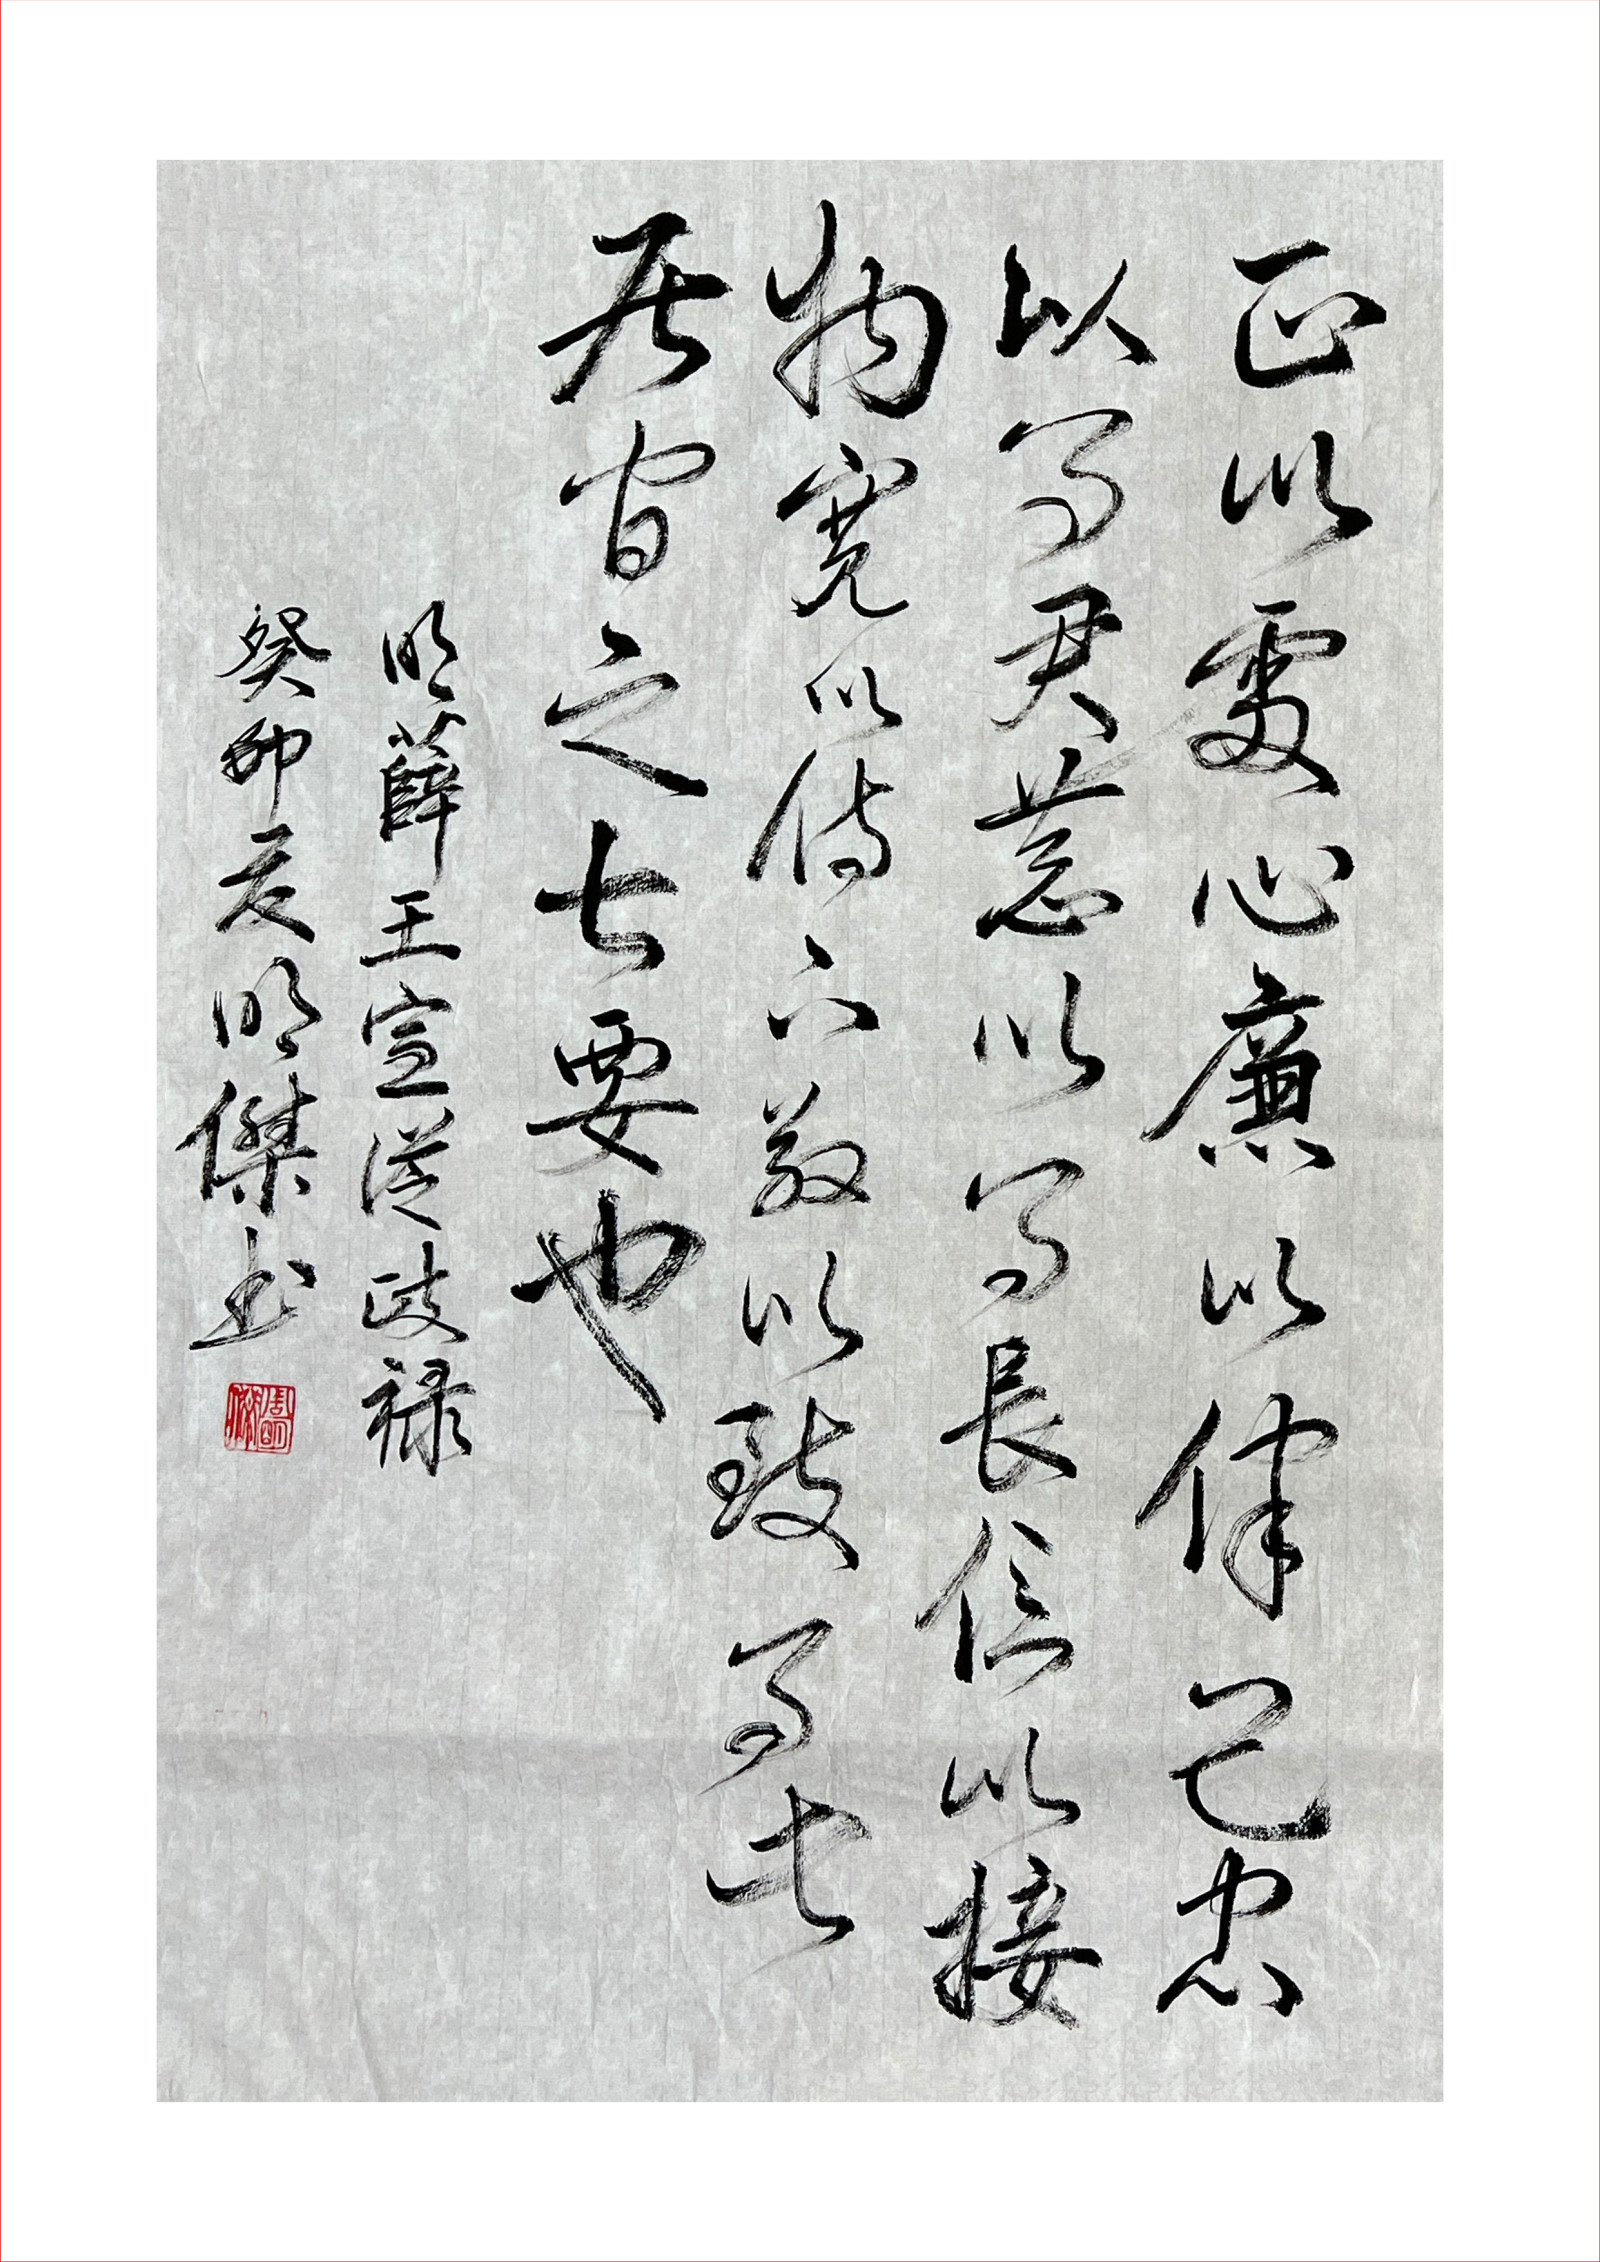 正以處心廉以律己忠
以事君恭以事長信以接
物寬以待下敬以致事此
居官之七要也
明薛王宣從政錄
癸卯夏明傑書
周明傑